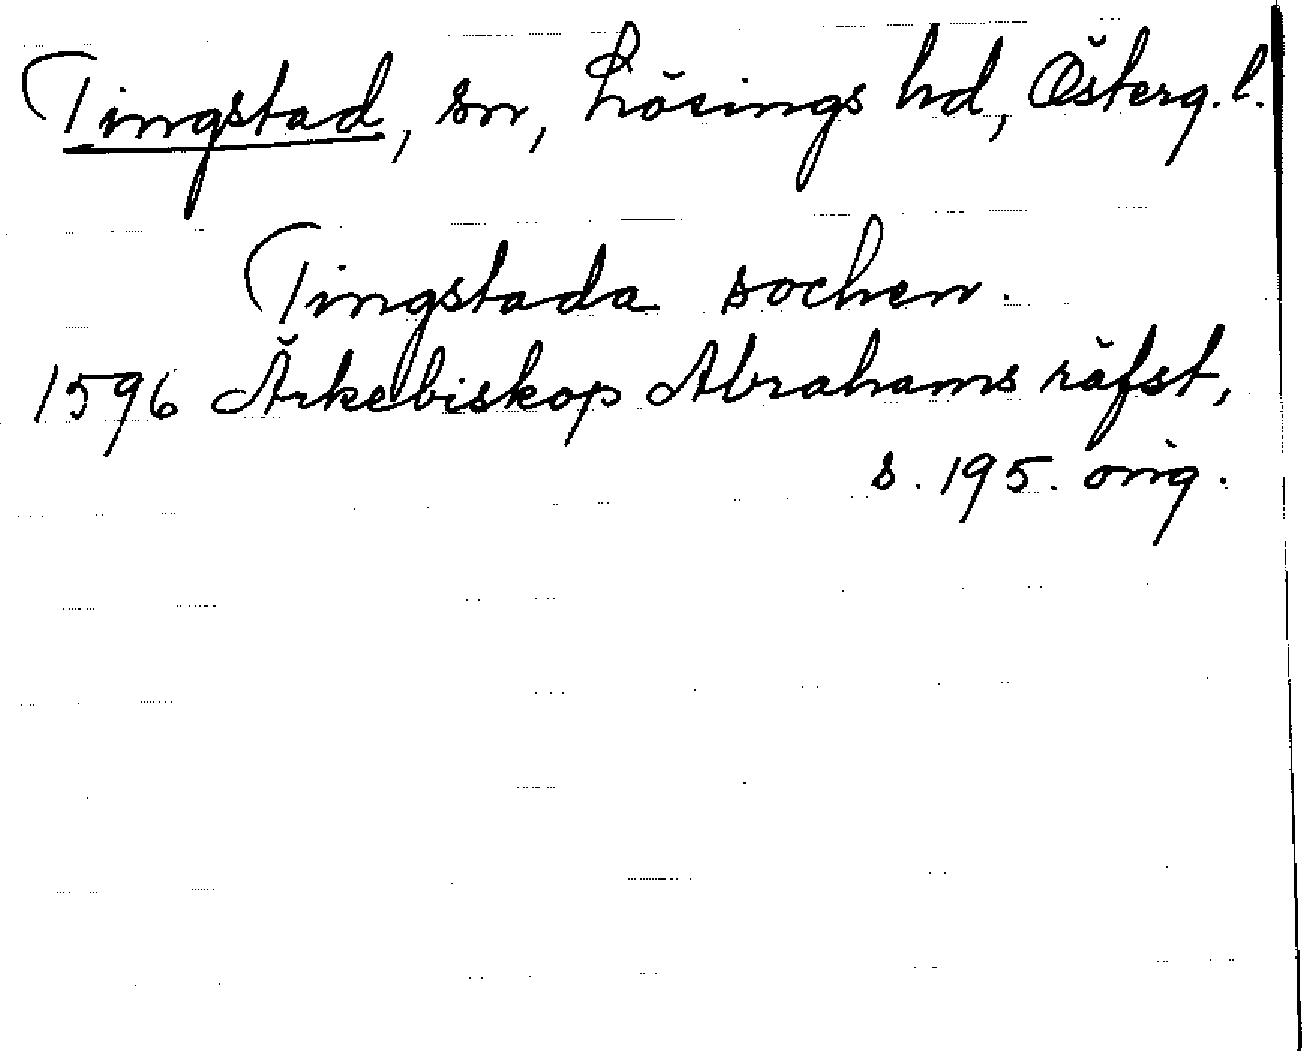 Tingstad, sn, Lösings hd, Österg. l.
Tingstada sochen.
1596 Ärkebiskop Abrahams räfst,
s. 195. orig.